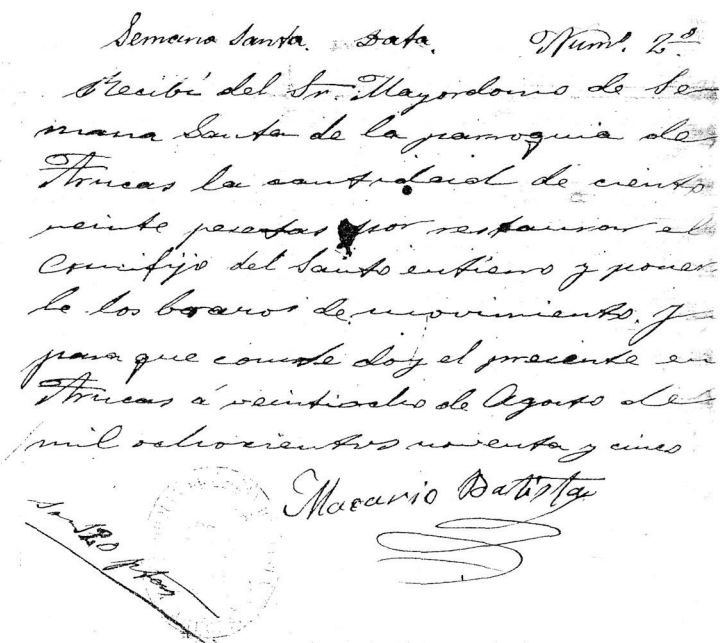 Semana Santa. Data. Num.º 2º
Recibí del Sr. Mayordomo de Se
mana Santa de la parroquia de
Arucas la cantidad de ciento
veinte pesetas por restaurar el
Crucifijo del Santo entierro y poner
le los brazos de movimiento. Y
para que conste doy el presente en
Arucas á veintiocho de Agosto de
mil ochocientos noventa y cinco
Macario Batista
Son 120 ptas